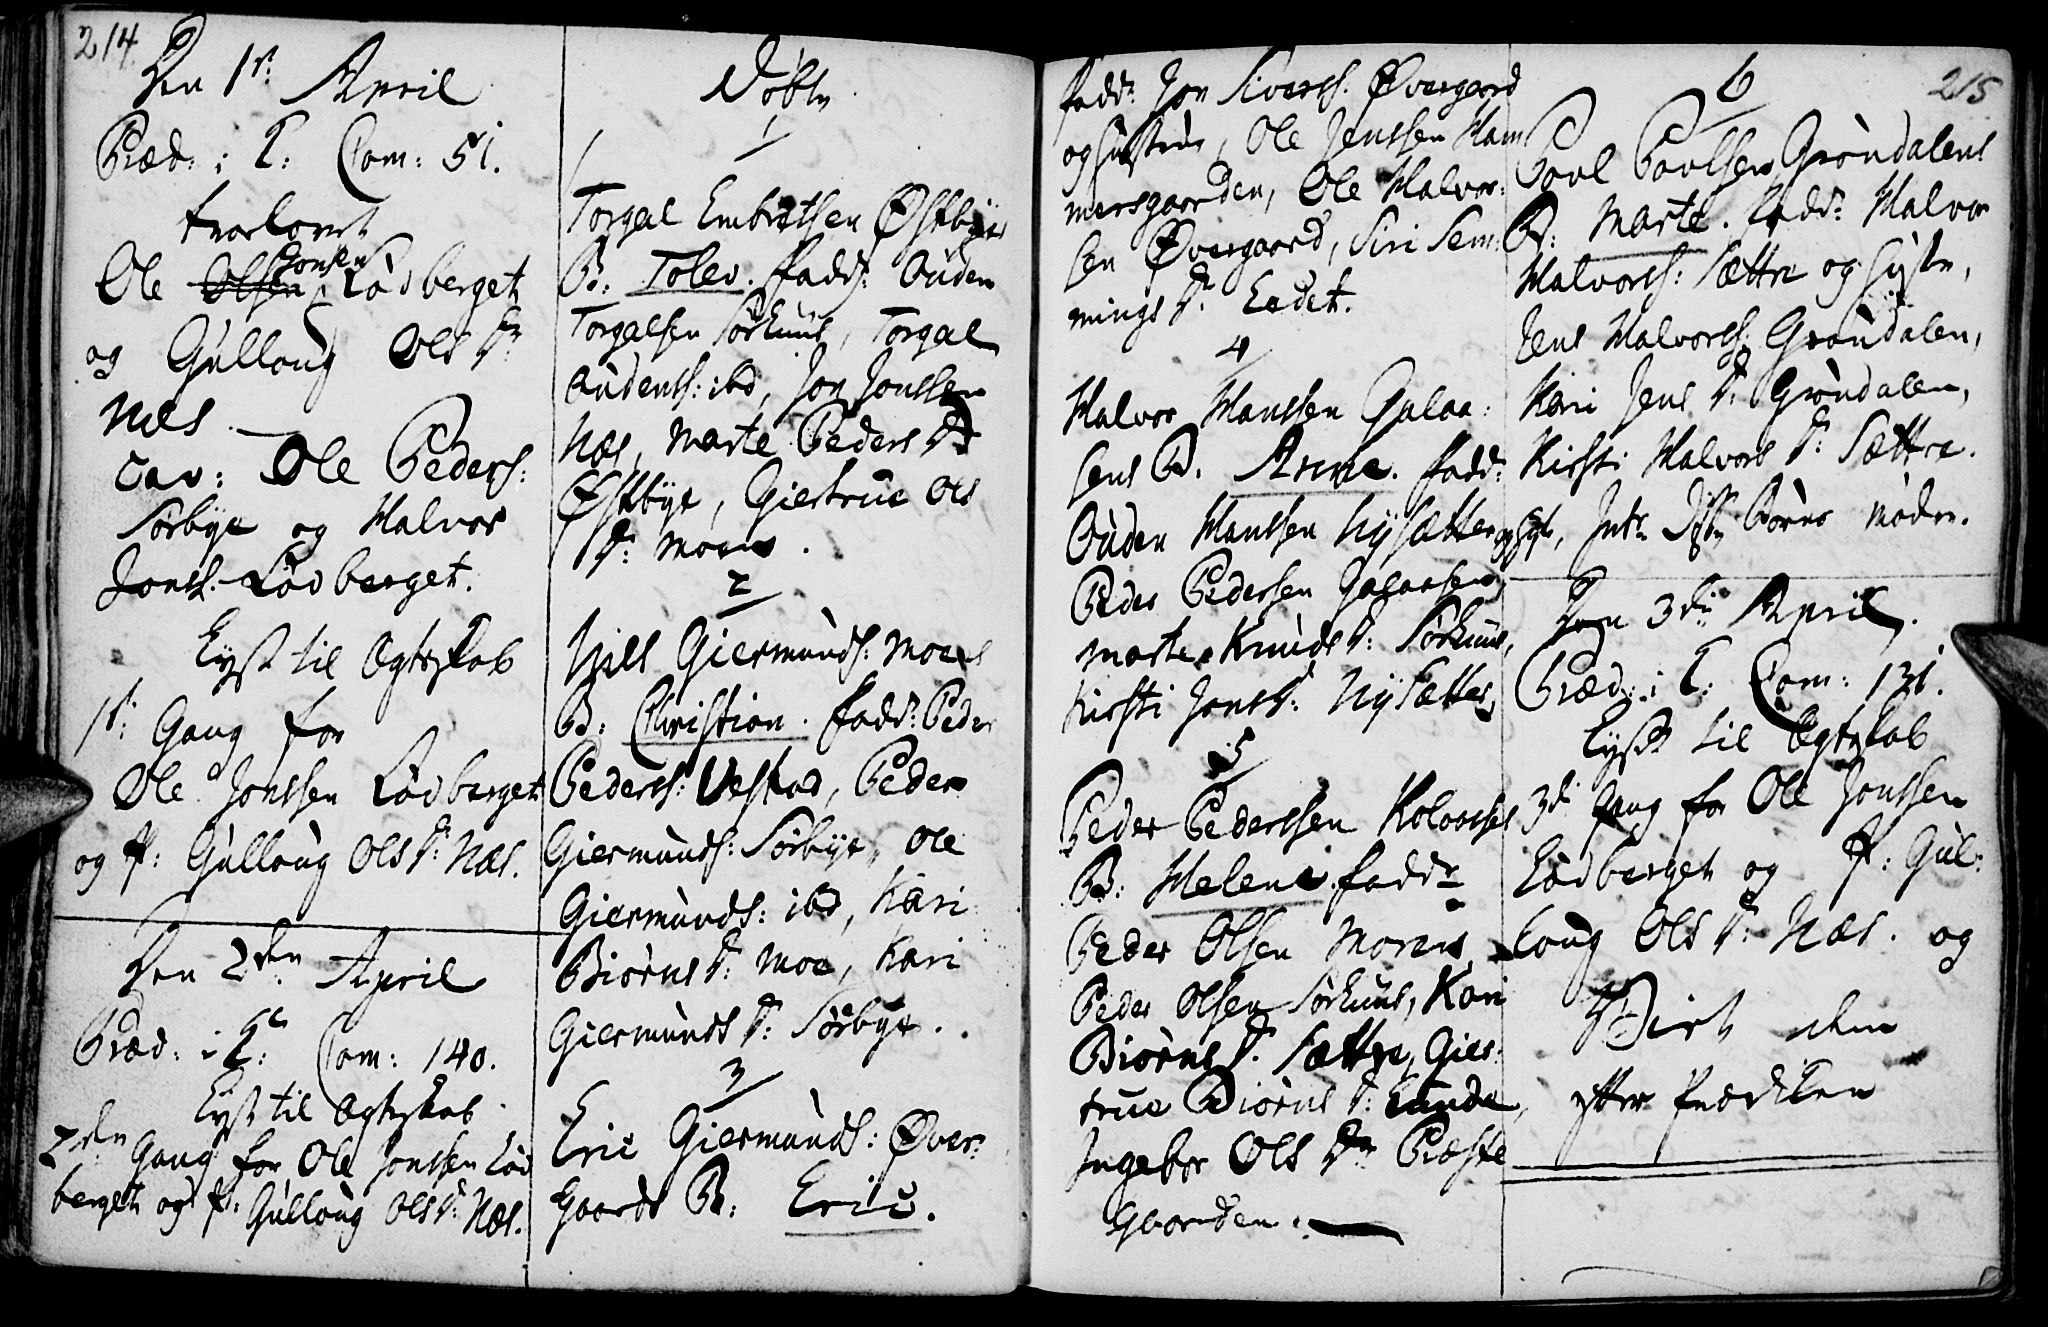 214
Den 1ste April
Præd: i T: Com: 51.
trolovet
Jonsen
Ole Olsen Lödberget
og Gulloug Ols Dr
Næs.
Cav: Ole Peders:
Sörbye og Halvor
Jonss. Lödberget.
Lyst til Ægteskab
1ste Gang for
Ole Jonssen Lödberget
og P: Gulloug Ols Dr: Næs.
Den 2den April
Præd: i T: Com: 140.
Lyst til Ægteskab
2den Gang for Ole Jonssen Löd
berget og P: Gulloug Ols Dr: Næs.
Döbte
1
Torgal Embretsen Östbyes
B: Tolev. fadd: Ouden
Torgalsen Sörhuus, Torgal
Oudenss: ibd, Jon Jonssen
Næs, Marte Peders Dr
Östbye, Giertrue Ols
Dr: Moen.
2
Niels Giermunds: Moens
B: Christian. fadd: Peder
Pederss: Vestad, Peder
Giermunds: Sörbye, Ole
Giermunds: ibd, Kari
Biörns Dr: Moe, Kari
Giermunds Dr: Sörbye.
3
Eric Giermunds: Över:
Gaards B: Eric.
fadd: Jon Siverss. Övergaard
og Hustrue, Ole Jenssen Ham
mersgaarden, Ole Halvor:
sen Övergaard, Siri Sem:
mings Dr: Eedet.
4
Halvor Hanssen Galaa:
sens B. Anne. fadd:
Ouden Hanssen Nysætter og Hust,
Peder Pedersen Galaasen,
Marte Knuds Dr: Sörhuus,
Kirsti Jons Dr: Nysætter,
5
Peder Pederssen Kolosses
B: Helene. fadd:
Peder Olsen Moren,
Peder Olsen Sörhuus, Kari
Biörns Dr: Sættre, Gier:
true Biörns Dr: Lunde,
Ingebor Ols Dr: Præste
Gaarden.
215
6
Povl Povlsen Gröndalens
B: Marte. fadd: Halvor
Halvorss: Sættre og Hustr,
Jens Halvorss. Gröndalen,
Kari Jens Dr: Gröndalen,
Kirsti Halvors Dr: Sættre.
Intr: Disse Börns Mödre.
Den 3die April.
Præd: i T: Com: 131.
Lyst til Ægteskab
3die Gang for Ole Jonssen
Lödberget og P: Gul:
loug Ols Dr: Næs. og
Viet dem
efter Prædiken